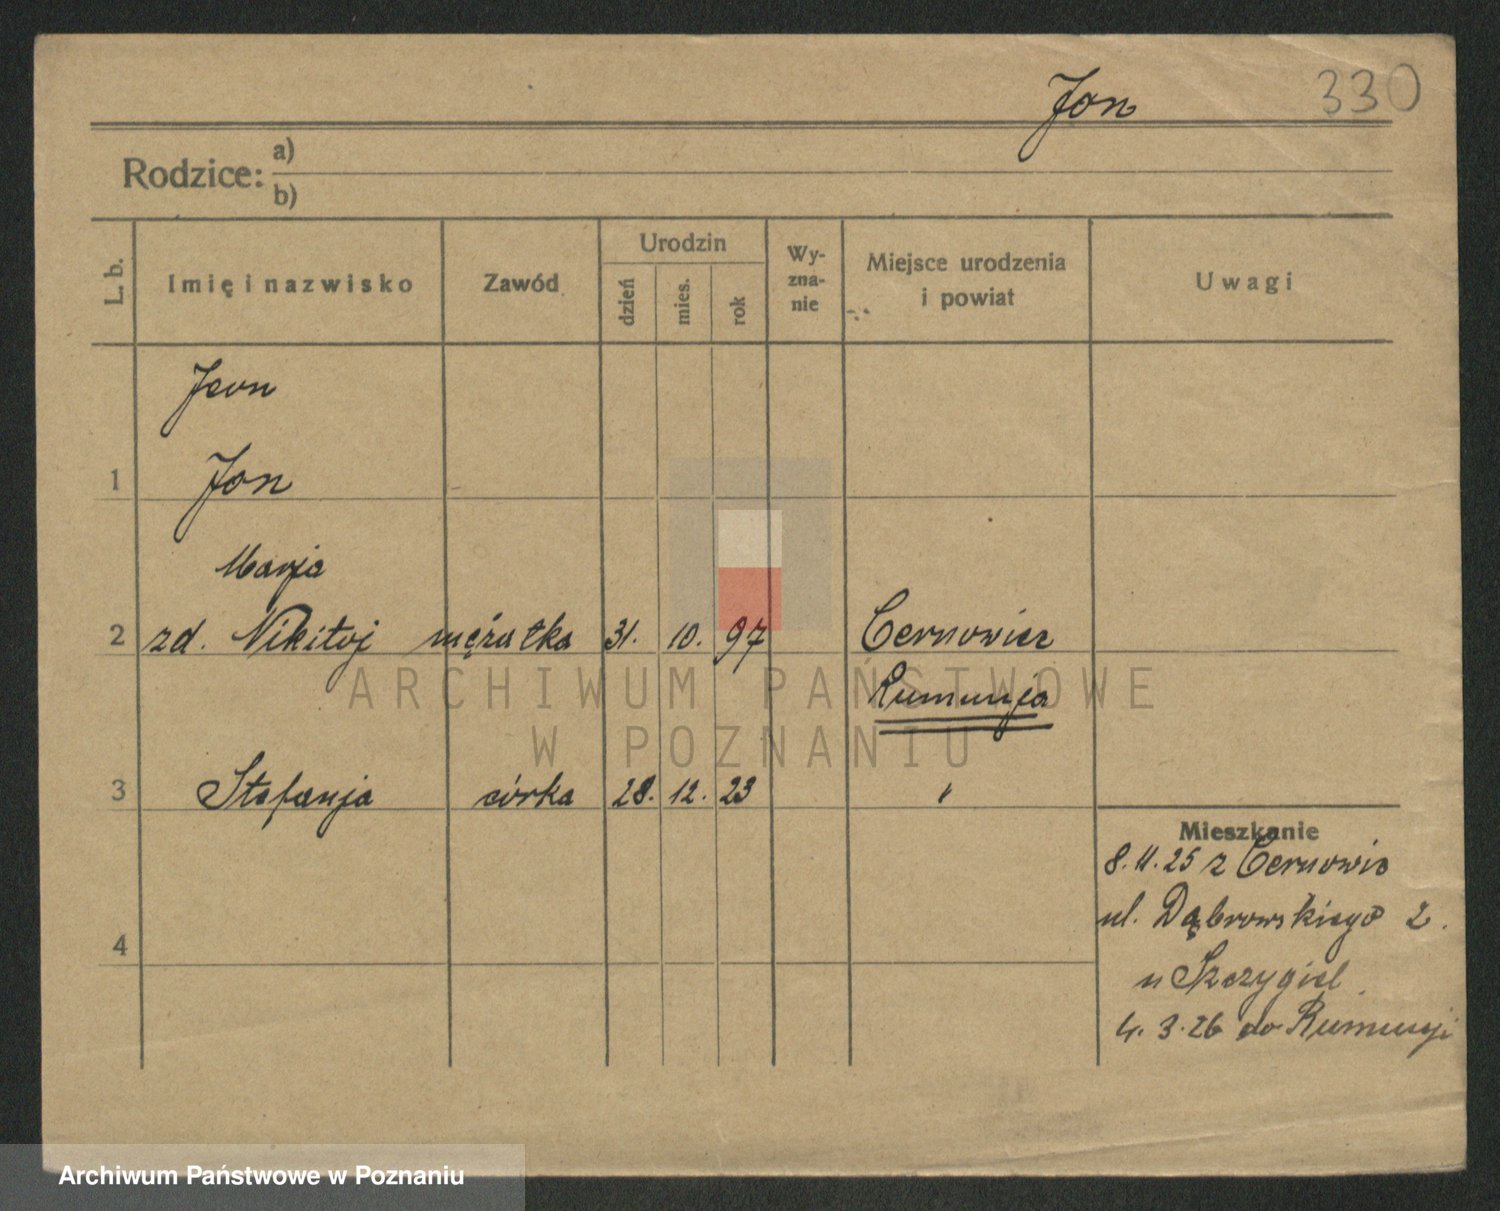 Jon 330
Rodzice: a)
b)
L. b. Imię i nazwisko Zawód Urodzin dzień mies. rok Wy-zna-nie Miejsce urodzenia i powiat Uwagi
Jeon
1 Jon
Marja
2 zd. Nikitoj mężatka 31. 10. 97 Cernowicz
Rumunja
ARCHIWUM PAŃSTWOWE
W POZNANIU
3 Stefanja córka 28. 12. 23 "
Mieszkanie
8. 11. 25 z Cernowic
ul. Dąbrowskiego 2.
4
u Szczygieł
4. 3. 26 do Rumunji
Archiwum Państwowe w Poznaniu